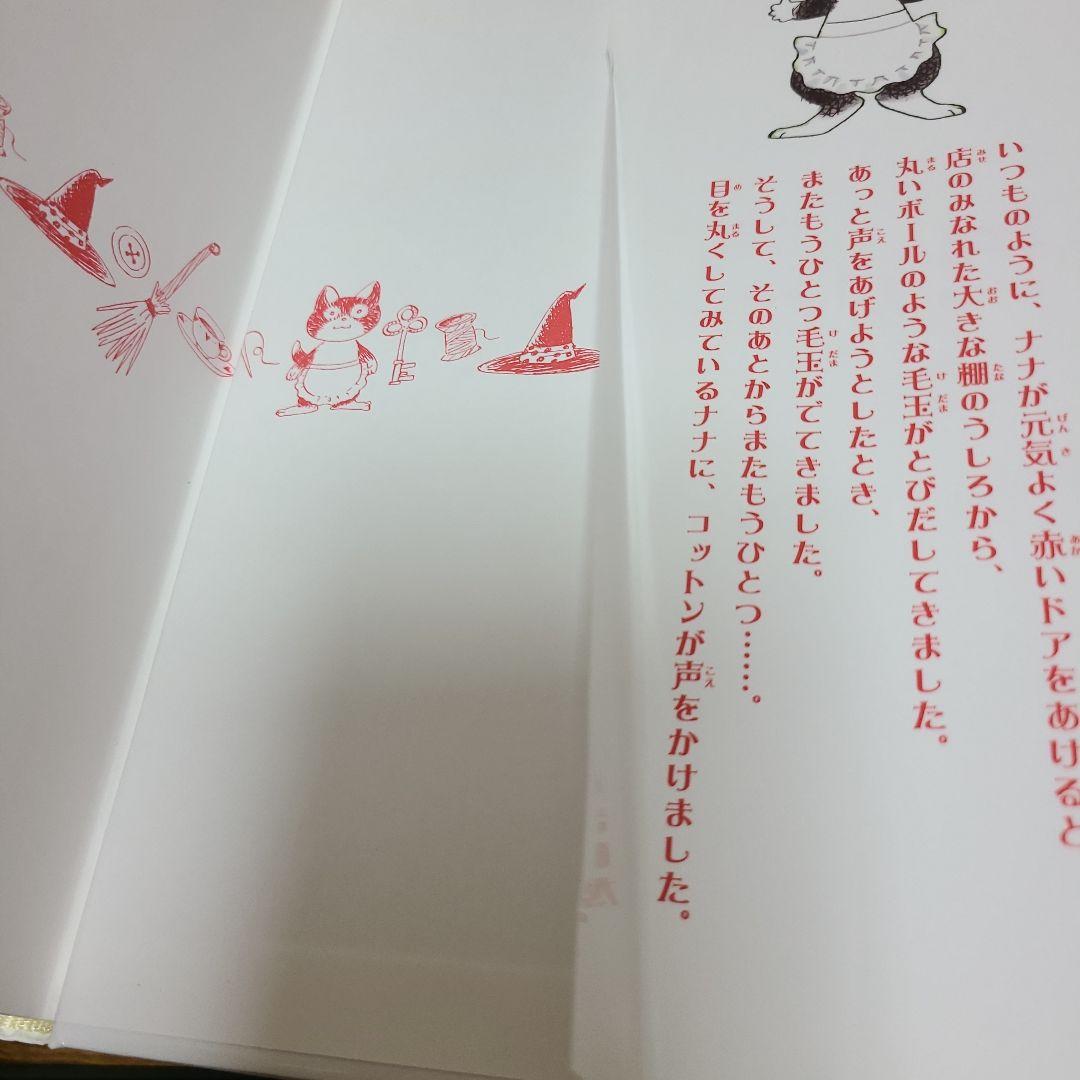 いつものように、ナナが元気よく赤いドアをあけると
店のみなれた大きな棚のうしろから、
丸いボールのような毛玉がとびだしてきました。
あっと声をあげようとしたとき、
またもうひとつ毛玉がでてきました。
そうして、そのあとからまたもうひとつ……。
目を丸くしてみているナナに、コットンが声をかけました。